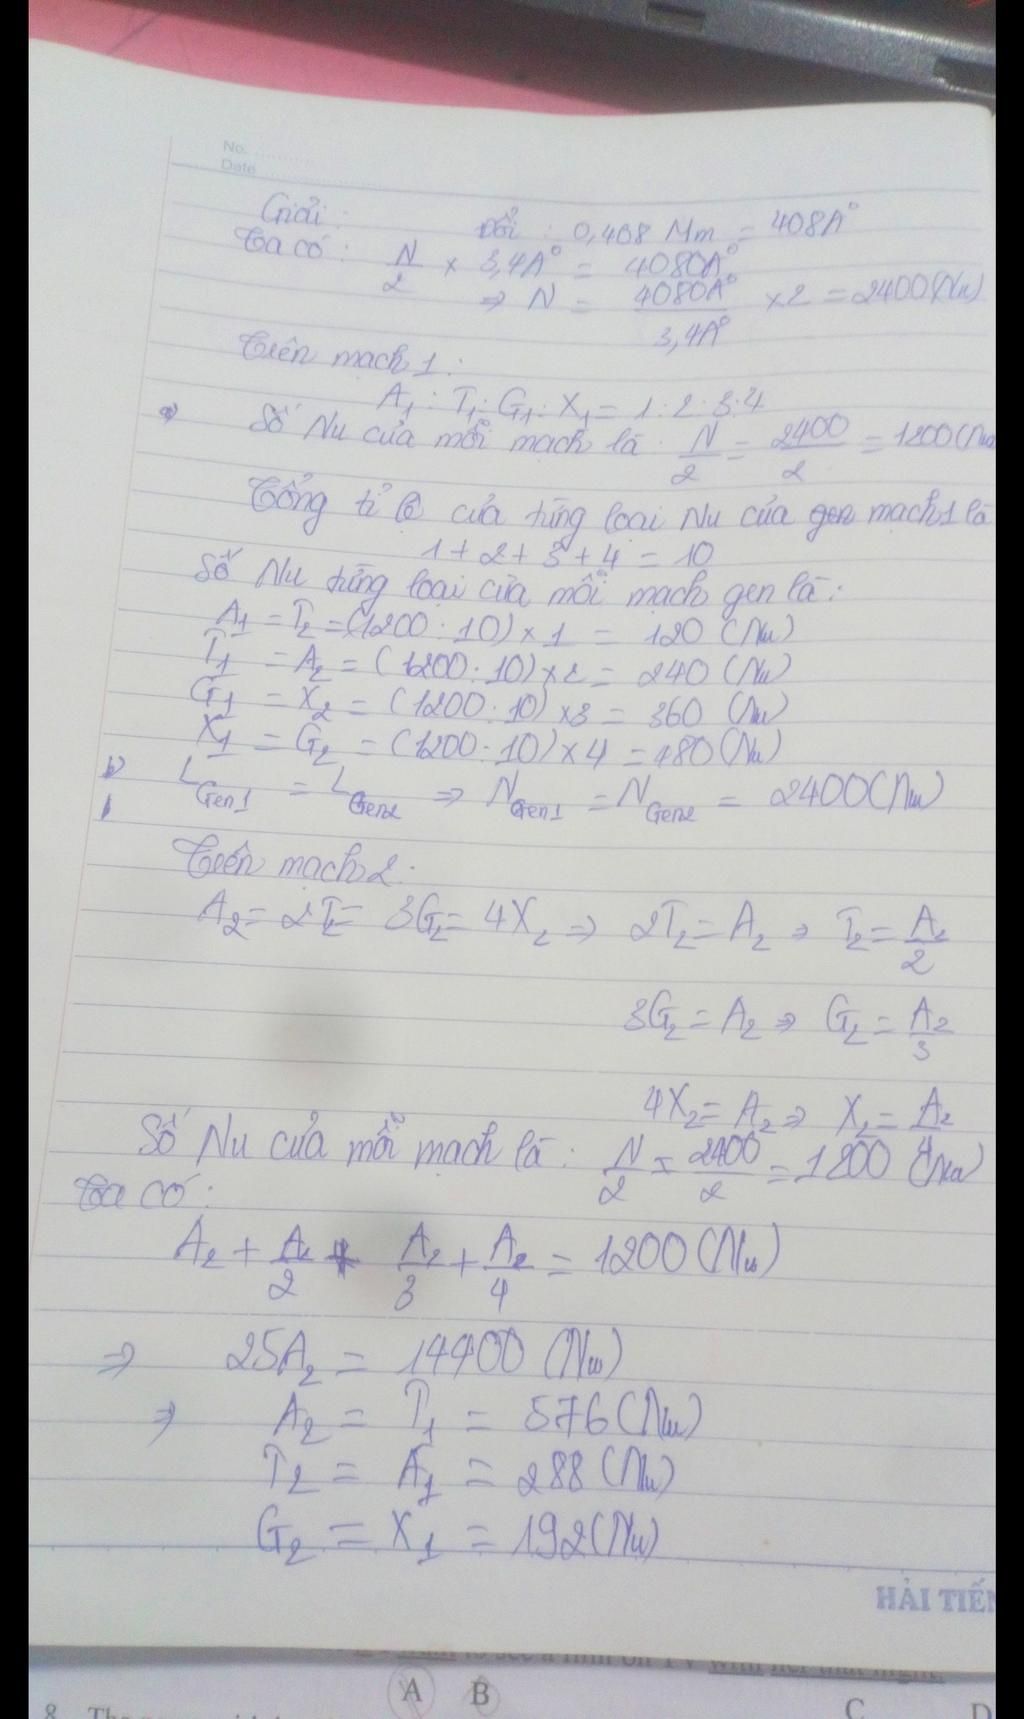 No.
Date
Giải: Đổi: 0,408 Mm = 408A°
Ta có: N/2 × 3,4A° = 4080A°
⇒ N = 4080A°/3,4A° ×2 = 2400(Nu)
Trên mạch 1:
A₁ : T₁ : G₁ : X₁ = 1:2:3:4
a) Số Nu của mỗi mạch là: N/2 = 2400/2 = 1200(Nu
Tổng tỉ lệ của từng loại Nu của gen mạch 1 là
1 + 2 + 3 + 4 = 10
Số Nu từng loại của mỗi mạch gen là:
A₁ = T₂ = (1200 : 10) × 1 = 120 (Nu)
T₁ = A₂ = (1200 : 10) × 2 = 240 (Nu)
G₁ = X₂ = (1200 : 10) ×3 = 360 (Nu)
X₁ = G₂ = (1200 : 10) × 4 = 480 (Nu)
b) L Gen1 = L Gen2 ⇒ N Gen1 = N Gen2 = 2400(Nu)
Trên mạch 2:
A₂ = 2T₂ = 3G₂ = 4X₂ ⇒ 2T₂ = A₂ ⇒ T₂ = A₂/2
3G₂ = A₂ ⇒ G₂ = A₂/3
4X₂ = A₂ ⇒ X₂ = A₂/4
Số Nu của mỗi mạch là: N/2 = 2400/2 = 1200 (Nu)
Ta có:
A₂ + A₂/2 + A₂/3 + A₂/4 = 1200 (Nu)
⇒ 25A₂ = 14400 (Nu)
⇒ A₂ = T₁ = 576 (Nu)
T₂ = A₁ = 288 (Nu)
G₂ = X₁ = 192(Nu)
HẢI TIẾN
to see a film on TV with her that night.
A B C D
8. The